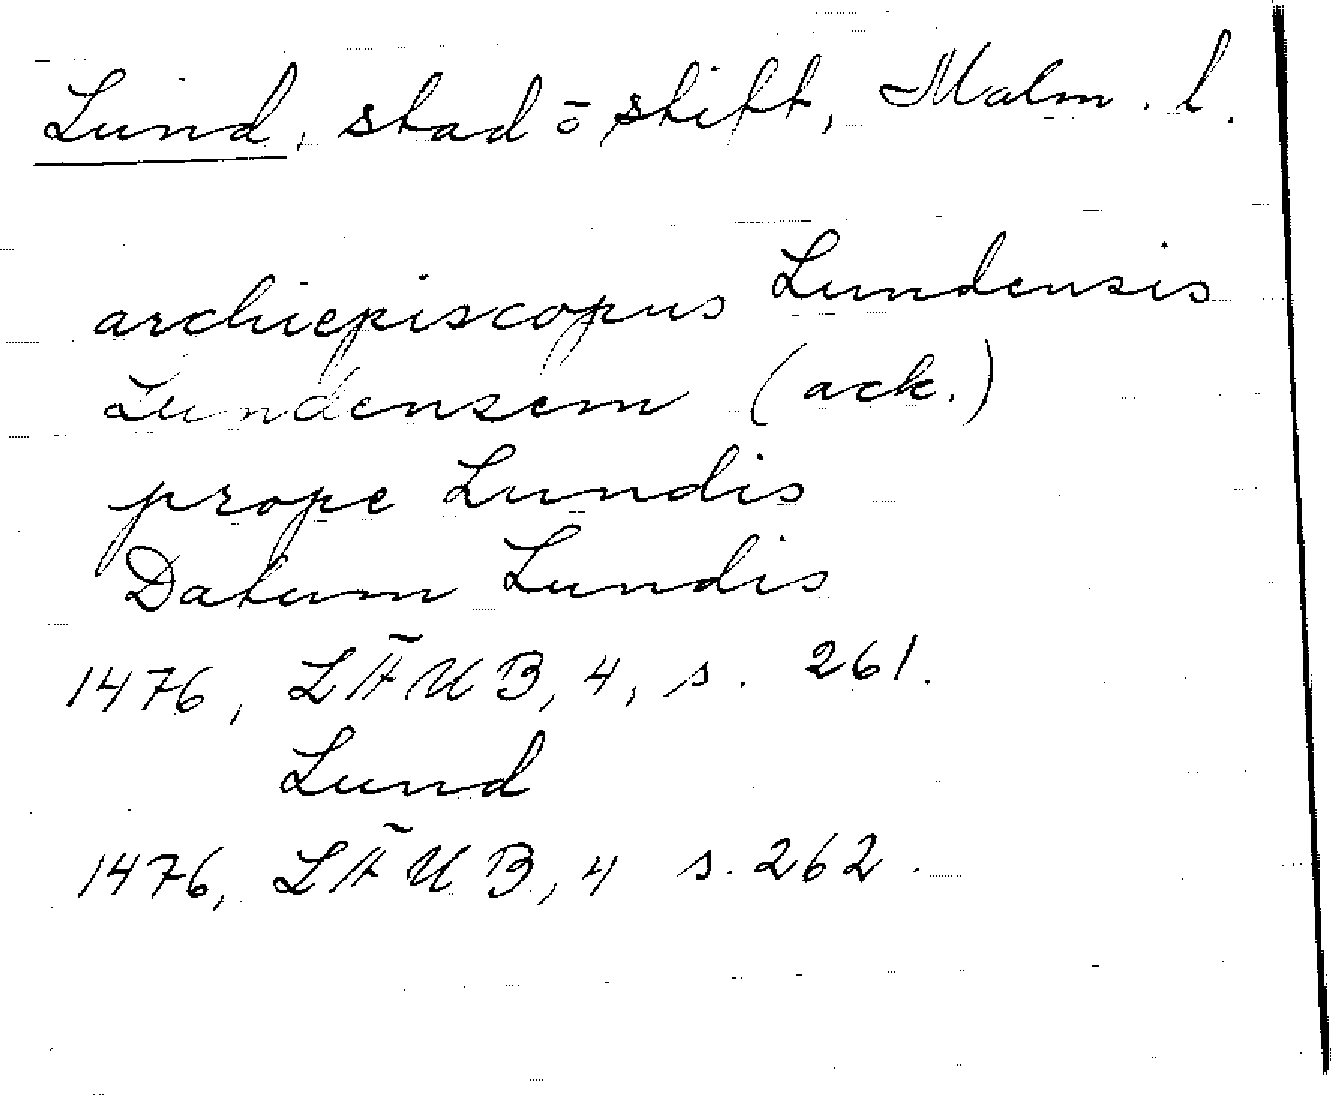 Lund, stad ō stift, Malm. l.
archiepiscopus Lundensis
Lundensem (ack.)
prope Lundis
Datum Lundis
1476, LÄUB, 4, s. 261.
Lund
1476, LÄUB, 4 s. 262.